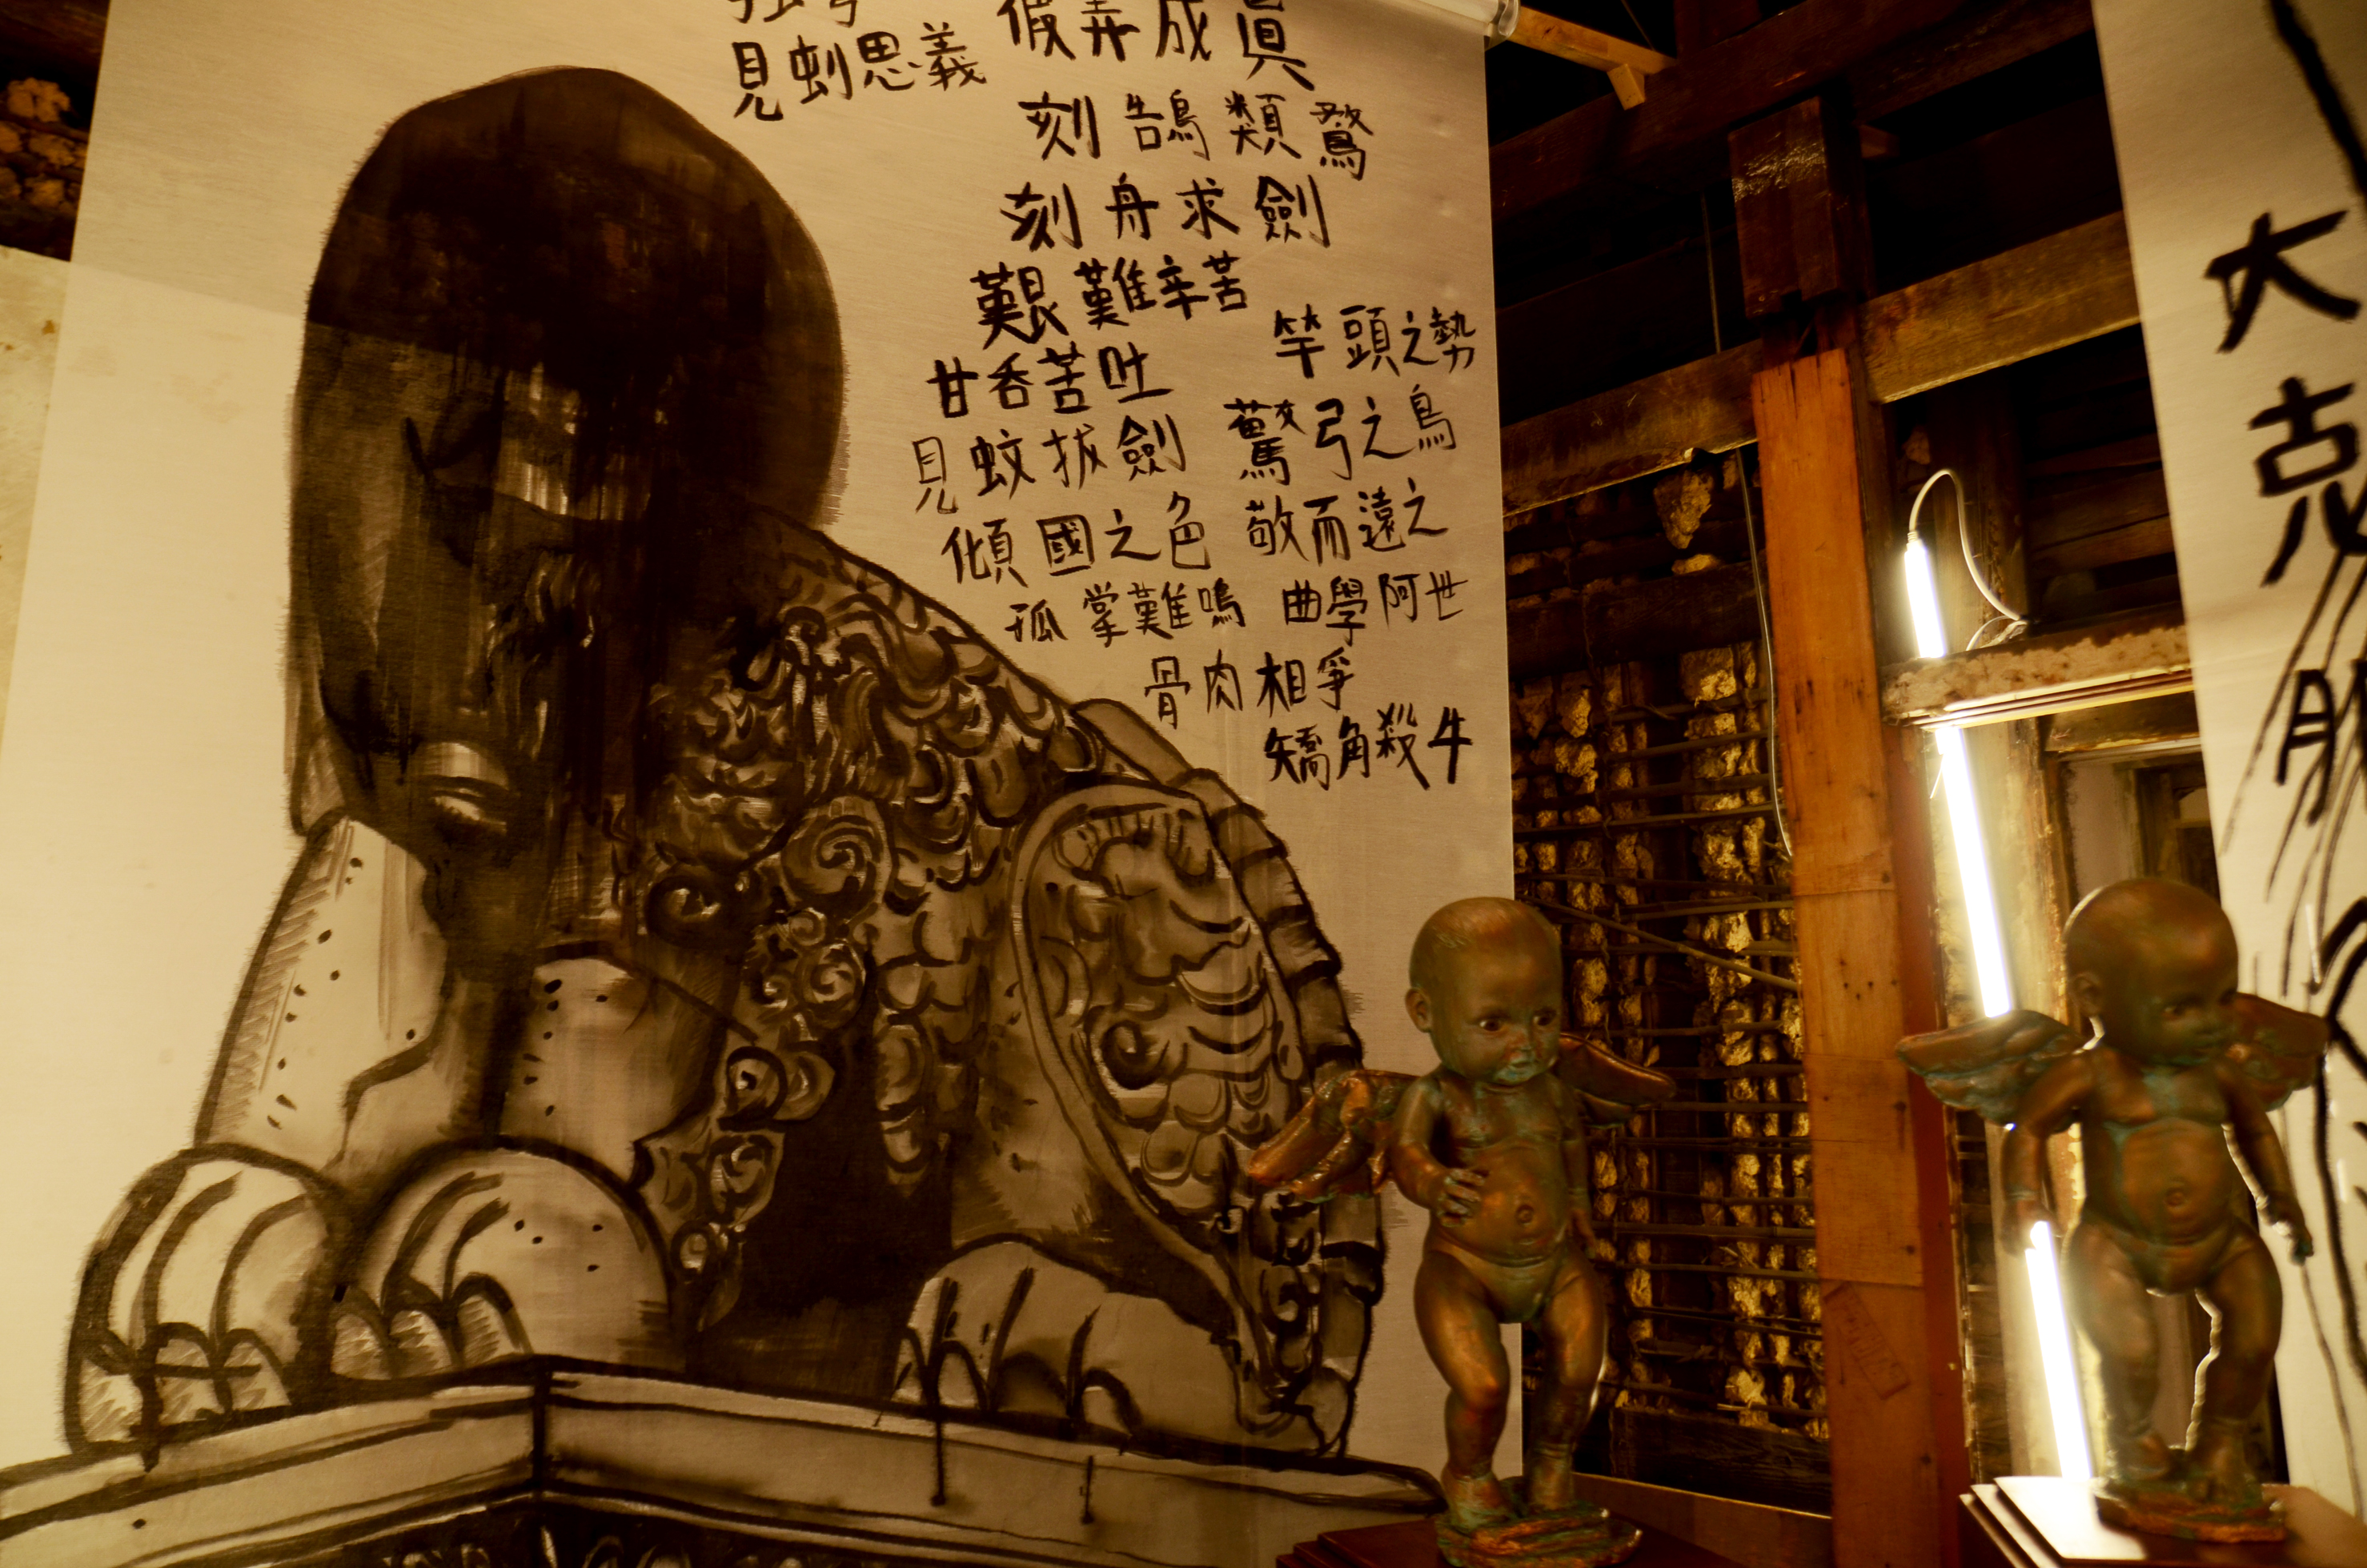 見蚓思義
假弄成眞
刻鵠類鶩
刻舟求劍
艱難辛苦
甘吞苦吐
見蚊拔劍
傾國之色
孤掌難鳴
竿頭之勢
驚弓之鳥
敬而遠之
曲學阿世
骨肉相爭
矯角殺牛
大
克